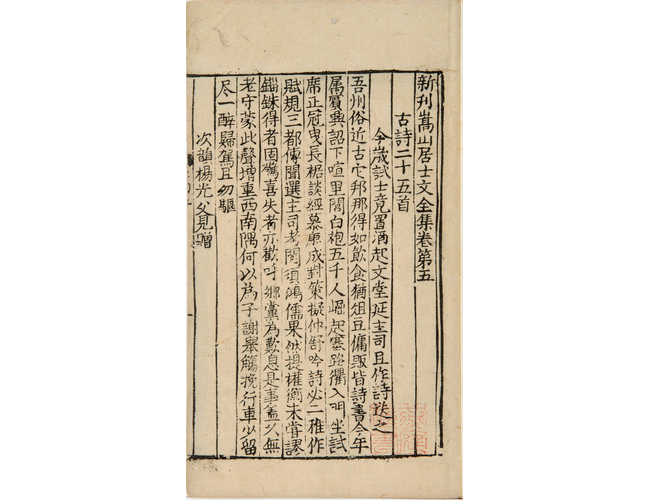 新刊嵩山居士文全集卷第五
古詩二十五首
今歲試士竟置酒起文堂延主司且作詩送之
吾州俗近古它邦那得如飲食猶俎豆傭販皆詩書今年
屬賓興詔下喧里閭白袍五千人崛起塞路衢入門坐試
席正冠曳長裾談經慕康成對策擬仲舒吟詩必二雅作
賦規三都傳聞選主司考閱須鴻儒果然提權衡未嘗謬
錙銖得者固驚喜失者亦歡呼鄉黨為歎息是事蓋久無
老守蒙此聲增重西南隅何以為子謝舉觴挽行車少留
尽一醉歸駕且勿驅
次韻楊光父見贈